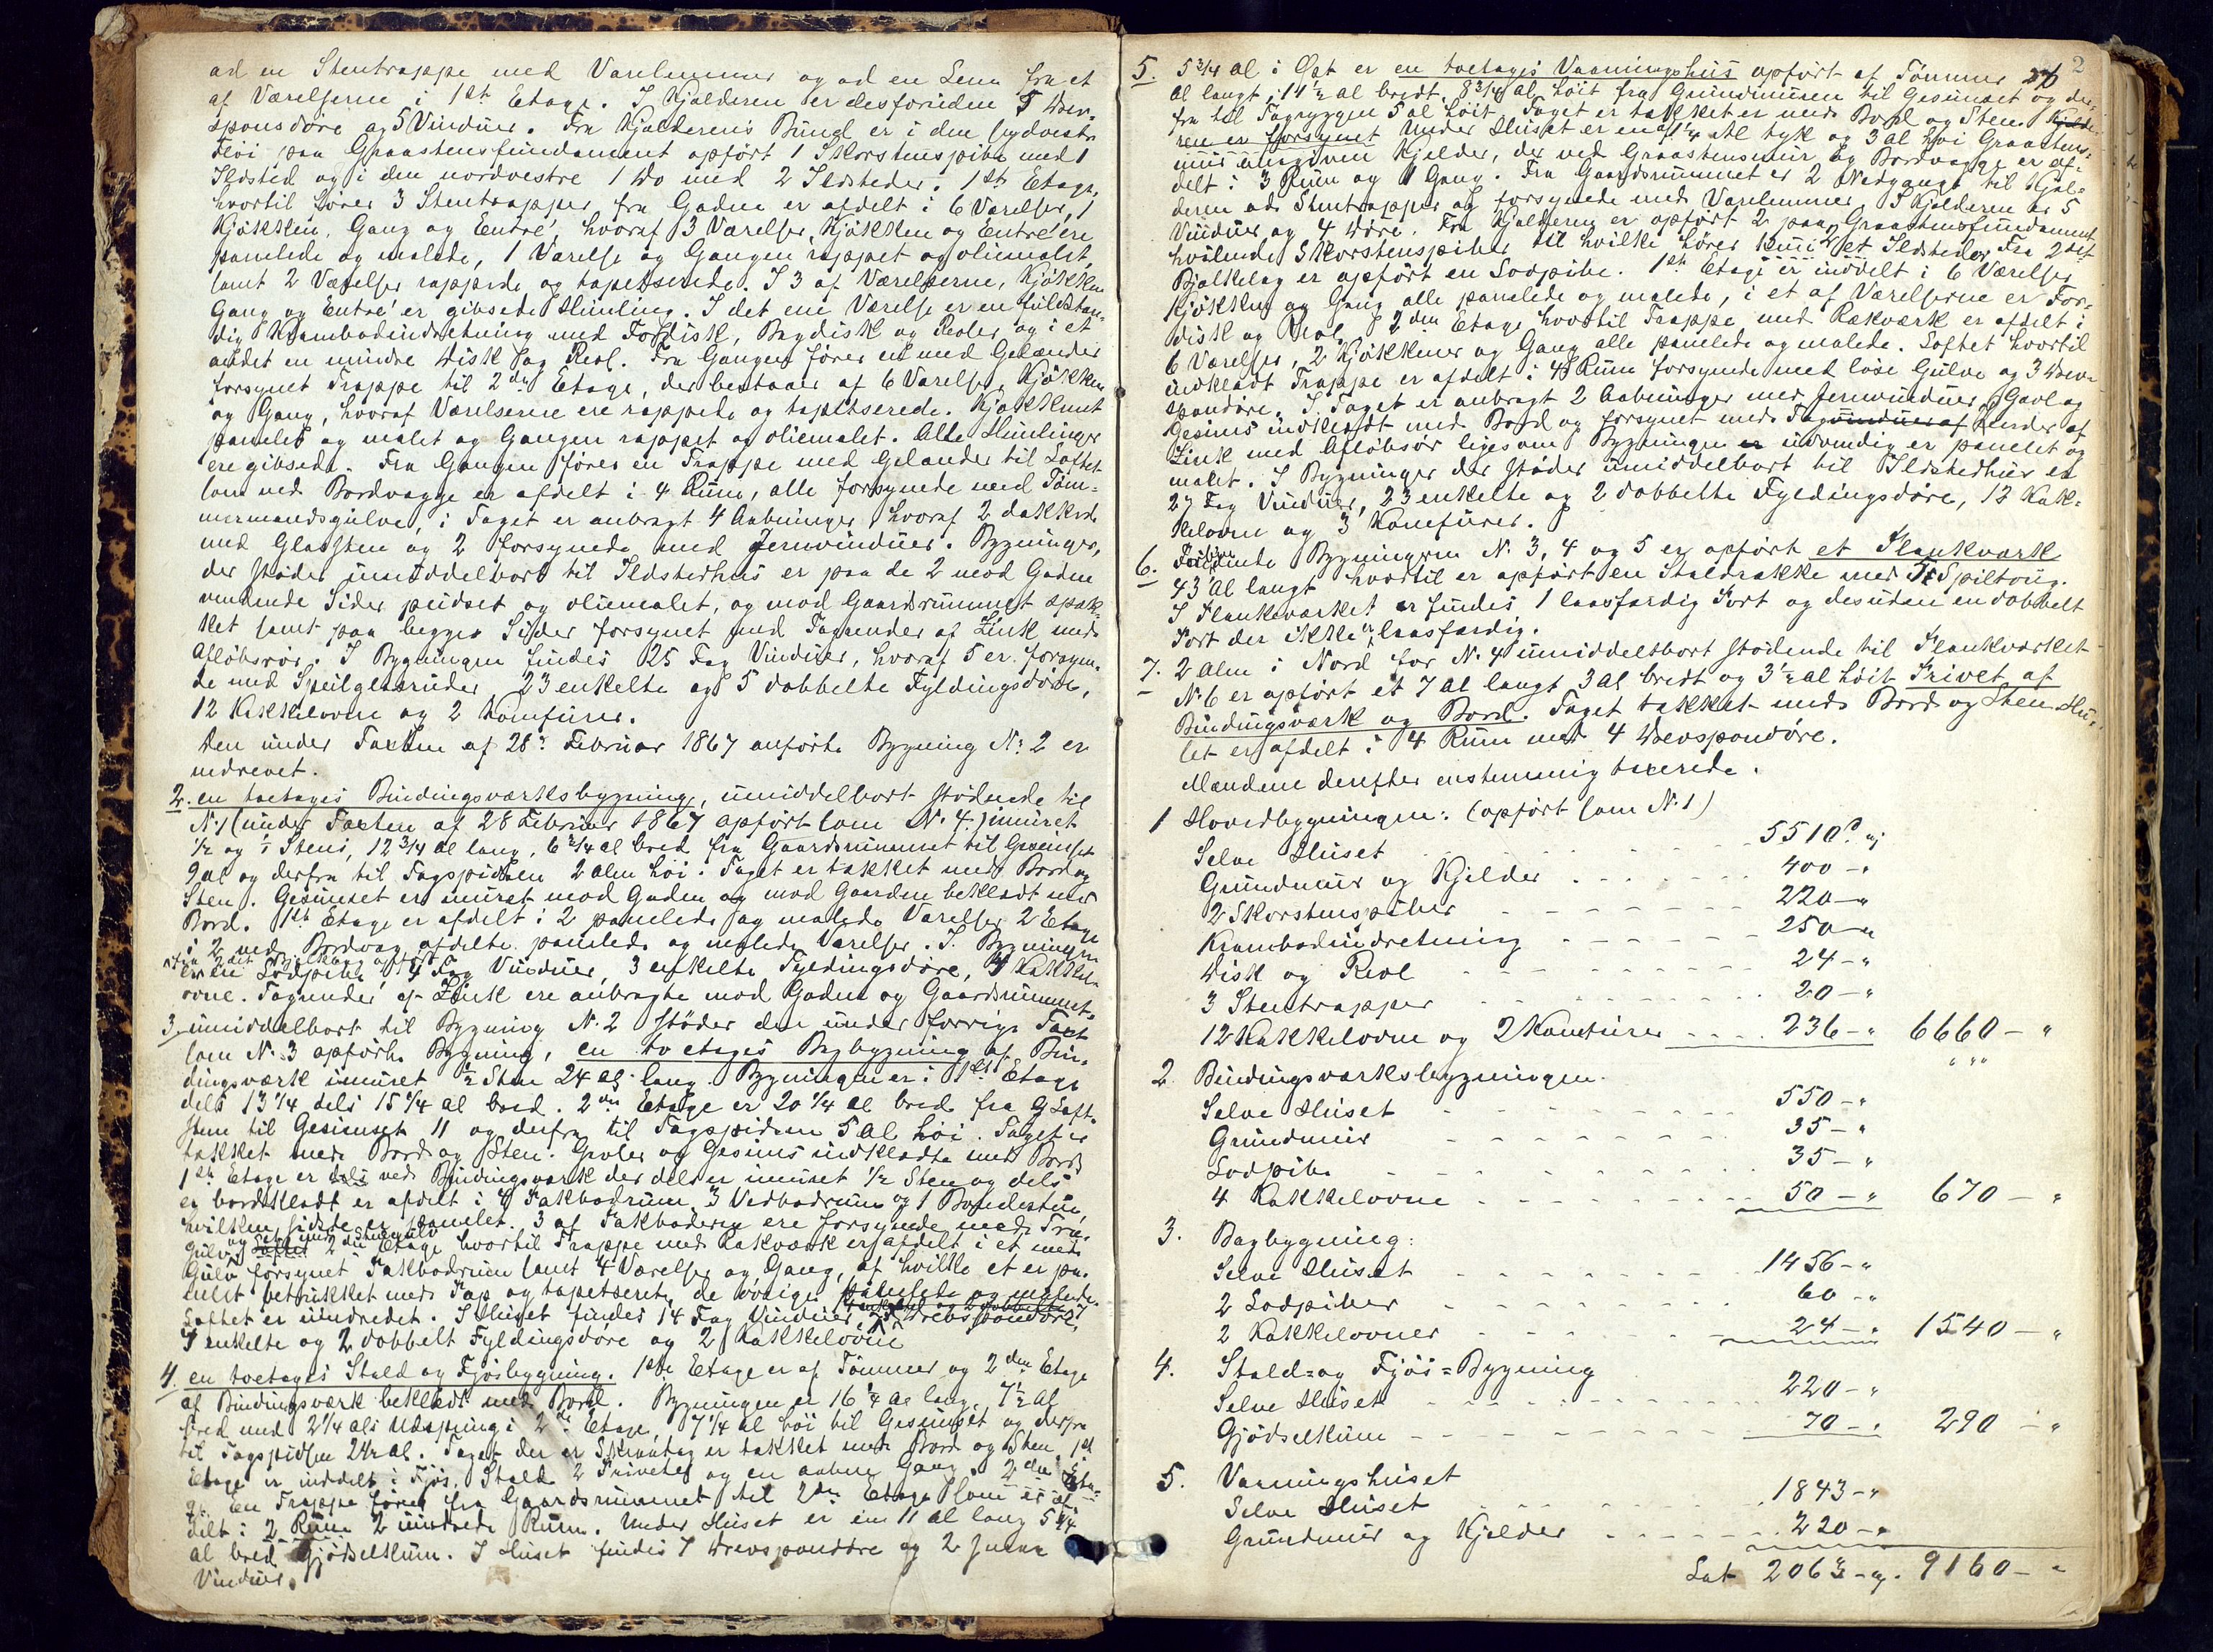 ad en Stentrappe med Varelemmer og ad en Lem fra et
af Værelserne i 1ste Etage. I Kjælderen er desforuden 5 Drev-
sponsdøre og 5 Vinduer. Fra Kjælderens Bund er i den sydvestre
Fløi paa Graastensfundament opført 1 Skorstenspibe med 1
Ildsted og i den nordvestre 1 Do med 2 Ildsteder. 1ste Etage,
hvortil hører 3 Stentrapper fra Gaden er afdelt i 6 Værelser, 1
Kjøkken, Gang og Entré, hvoraf 3 Værelser, Kjøkken og Entré ere
panelede og malede, 1 Værelse og Gangen rappet og oliemalet,
samt 2 Værelser rappede og tapetserede. I 3 af Værelserne, Kjøkken
Gang og Entré er gibsede Himling. I det ene Værelse er en fuldstæn-
dig Krambodindretning med Fordisk, Bagdisk og Reoler og i et
andet en mindre Disk og Reol. Fra Gangen fører en med Gelænder
forsynet Trappe til 2den Etage, der bestaaer af 6 Værelser, Kjøkken
og Gang, hvoraf Værelserne ere rappede og tapetserede. Kjøkkenet
panelet og malet og Gangen rappet og oliemalet. Alle Himlinger
ere gibsede. Fra Gangen fører en Trappe med Gelænder til Loftet
som ved Bordvægge er afdelt i 4 Rum, alle forsynede med Tøm-
mermandsgulve, i Taget er anbragt 4 Aabninger, hvoraf 2 dækkede
med Glassten og 2 forsynede med Jernvinduer. Bygningen,
der støder umiddelbart til Ildstedhus er paa de 2 mod Gaden
vendende Sider pudset og oliemalet, og mod Gaardsrummet spæk-
ket samt paa begge Sider forsynet med Tagrender af Zink med
Afløbsrør. I Bygningen findes 25 Fag Vinduer, hvoraf 5 er forsyne-
de med Speilglasruder, 23 enkelte og 5 dobbelte Fyldingsdøre,
12 Kakkelovne og 2 Komfurer.
Den under Taxten af 28de Februar 1867 anførte Bygning No 2 er
nedrevet.
2. en toetages Bindingsværksbygning, umiddelbart stødende til
No 1 (under Taxten af 28 Februar 1867 opført som No 4.) muret
1/2 og 1 Stens, 12 3/4 al lang, 6 3/4 al bred fra Gaardsrummet til Gesimset
9 al og derfra til Tagspidsen 2 alen høi. Taget er tækket med Bord og
Sten. Gesimset er muret mod Gaden og mod Gaarden beklædt med
Bord. 1ste Etage er afdelt i 2 panelede og malede Værelser, 2 Etage
i 2 ved Bordvæg afdelte panelede og malede Værelser. I Bygningen
er en Lodpibe 4 Fag Vinduer, 3 enkelte Fyldingsdøre, 4 Kakkel-
ovne. Tagrender af Zink ere anbragte mod Gaden og Gaardsrummet.
3. umiddelbart til Bygning No. 2 støder den under forrige Taxt
som No 3 opførte Bygning, en toetages Bagbygning af Bin-
dingsværk muret 1/2 Sten 24 al lang. Bygningen er i 1ste Etage
dels 13 1/4 dels 15 1/4 al bred. 2den Etage er 20 1/4 al bred fra
til Gesimset 11 og derfra til Tagspidsen 5 al høi. Taget er
tækket med Bord og Sten. Gavler og Gesims indklædte med Bord
1ste Etage er dels ved Bindingsværk der dels er muret 1/2 Sten og dels
er bordklædt er afdelt i 4 Pakbodrum, 3 Vedbodrum og 1 Bondestue,
hvilken sidste er panelet. 3 af Pakboderne ere forsynede med Træ-
gulv 2den Etage hvortil Trappe med Rækværk er afdelt i et med
Gulv forsynet Pakbodrum samt 4 Værelser og Gang, af hvilke et er pa-
nelet betrukket med Pap og tapetseret, de øvrige panelede og malede.
Loftet er uindredet. I Huset findes 14 Fag Vinduer, Drevspondøre,
enkelte og 2 dobbelt Fyldingsdøre og 2 Kakkelovne
4. en toetages Stald og Fjøsbygning. 1ste Etage er af Tømmer og 2den Etage
af Bindingsværk beklædt med Bord. Bygningen er 16 1/4 al lang, 7 1/2 al
bred med 2 1/4 als Udspring i 2de Etage, 7 1/4 al høi til Gesimset og derfra
til Tagspidsen 2 1/2 al. Taget der er Skraatag er tækket med Bord og Sten. 1ste
Etage er inddelt i Fjøs, Stald 2 Priveter og en aaben Gang. 2den Eta-
ge. En Trappe fører fra Gaardsrummet til 2den Etage som er af-
delt i 2 Rum 2 uindredede Rum. Under Huset er en 11 al lang 5 3/4
al bred Gjødselkum. I Huset findes 7 Drevspondøre og 2 smaa
Vinduer.
2
5. 5 3/4 al i Øst er en toetages Vaaningshus opført af Tømmer 26
al langt, 14 1/2 al bredt, 8 3/4 al høit fra Grundmuren til Gesimset og der-
fra til Tagryggen 5 al høit. Taget er tækket med Bord og Sten. Kjælde-
ren er forsynet Under Huset er en af 1 1/4 al tyk og 3 al høi Graastens-
mur omgiven Kjelder, der ved Graastensmur og Bordvægge er af-
delt i 3 Rum og 1 Gang. Fra Gaardsrummet er 2 Nedgange til Kjæl-
deren ad Stentrapper og forsynede med Varelemmer. I Kjælderen er 5
Vinduer og 4 Døre. Fra Kjælderen er opført 2 paa Graastensfundament
hvilende Skorstenspiber til hvilke hører Ildsteder. Fra 2det
Bjælkelag er opført en Lodpibe. 1ste Etage er inddelt i 6 Værelser
Kjøkken og Gang alle panelede og malede, i et af Værelserne er For-
disk og Reol. 2den Etage hvortil Trappe med Rækværk er afdelt i
6 Værelser, 2 Kjøkkener og Gang alle panelede og malede. Loftet hvortil
indklædt Trappe er afdelt i 4 Rum forsynede med løse Gulve og 3 Drev-
spondøre. I Taget er anbragt 2 Aabninger med Jernvinduer, Gavl og
Gesims indklædt med Bord og forsynet med Tagvinduer af Render af
Zink med Afløbsrør ligesom Bygningen er udvendig er panelet og
malet. I Bygningen der støder umiddelbart til Ildstedhus er
27 Fag Vinduer, 23 enkelte og 2 dobbelte Fyldingsdøre, 12 Kak-
kelovne og 3 Komfurer.
6. Bygningerne No. 3, 4 og 5 er opført et Plankværk
43 al langt hvortil er opført en Staldrække med Spiltoug.
I Plankeværket er findes 1 laasfærdig Port og desuden en dobbelt
Port der ikke er laasfærdig.
7. 2 alen i Nord for No. 4 umiddelbart stødende til Plankværket
No 6 er opført et 7 al langt 3 al bredt og 3 1/2 al høit Privet af
Bindingsværk og Bord. Taget tækket med Bord og Sten. Hu-
set er afdelt i 4 Rum med 4 Drevspondøre.
Mændene derefter enstemmig taxerede.
1 Hovedbygningen: (opført som No. 1)
Selve Huset 5510
Grundmur og Kjelder 400 - "
2 Skorstenspiber 220 - "
Krambodindretning 250 "
Disk og Reol 24 - "
3 Stentrapper 20 - "
12 Kakkelovne og 2 Komfurer 236 - " 6660 - "
2 Bindingsværksbygningen.
Selve Huset 550 - "
Grundmur 35 - "
Lodpibe 35 - "
4 Kakkelovne 50 - " 670 - "
3. Bagbygning:
Selve Huset 1456 - "
2 Lodpiber 60 - "
2 Kakkelovner 24 - " 1540 - "
4. Stald- og Fjøs-Bygning
Selve Huset 220 - "
Gjødselkum 70 - " 290 - "
5. Vaaningshuset
Selve Huset 1843 - "
Grundmur og Kjelder 220 - "
Lat 2063 - 9160 - "